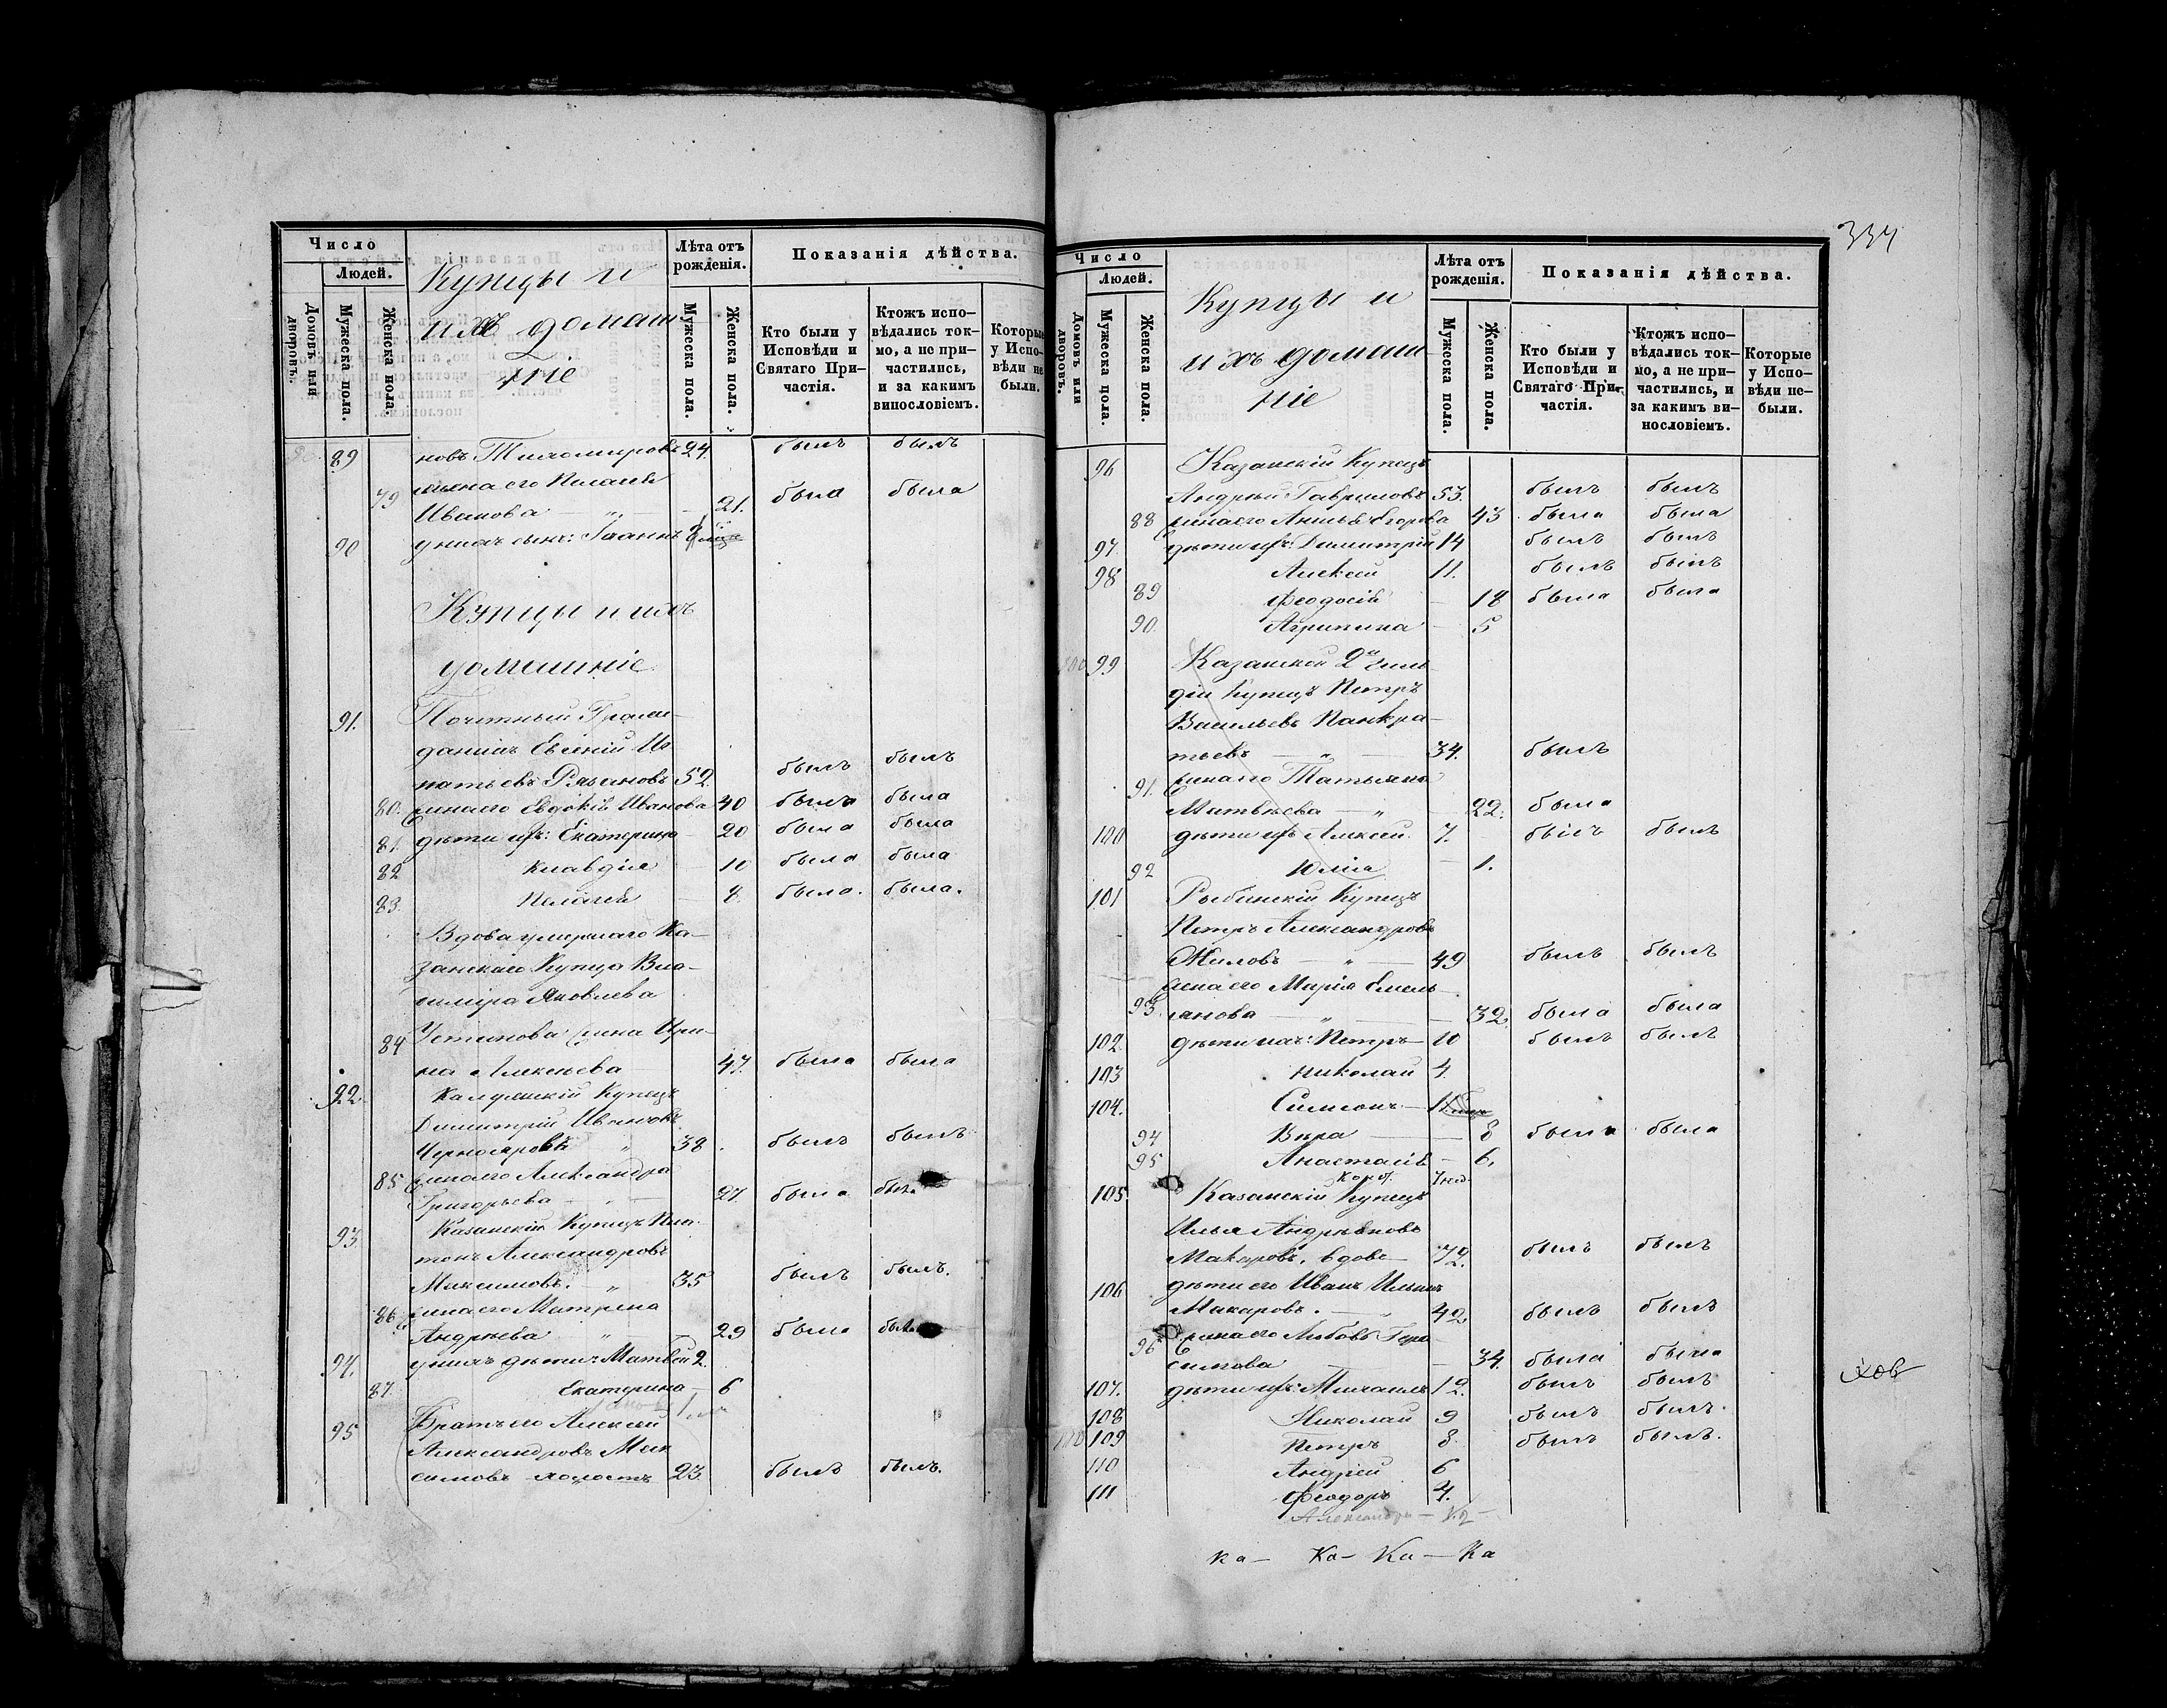 Число
Людей.
Домовъ или дворовъ.
Мужеска пола.
Женска пола.
Купцы и
ихъ домаш-
ніе
Лѣта отъ рожденія.
Мужеска пола.
Женска пола.
Показанія дѣйства.
Кто были у Исповѣди и Святаго Причастія.
Ктожъ исповѣдались токмо, а не причастились, и за какимъ винословіемъ.
Которые у Исповѣди не были.
89 новъ Тихомировъ 24. былъ былъ
79 жена его Пелагея
Иванова — „ — 21. была была
90 у нихъ сынъ: Іоаннъ
Купцы и ихъ
домашніе
91. Почетный Граж-
данинъ Евгеній Иг
натьевъ Рязановъ 52 былъ былъ
80. жена его Евдокія Иванова 40 была была
81 дѣти ихъ: Екатерина 20 была была
82 Клавдія 10 была была
83. Пелагея 8. была. была.
Вдова умершаго Ка-
занскаго Купца Вла-
диміра Яковлева
84 Устинова жена Ири-
на Алексѣева 47. была была
92. Калужскій Купецъ
Димитрій Ивановъ
Чернояровъ „ 38 былъ былъ
85 жена его Александра
Григорьева — „ — 27. была была
93. Казанскій Купецъ Пла-
тонъ Александровъ
Максимовъ. „ 35 былъ былъ.
86. жена его Матрена
Андреева „ 29 была была
94. у нихъ дѣти: Матвей 2.
87. Екатерина — 6
95 Братъ его Алексей
Александровъ Мак
симовъ холостъ 23. былъ былъ.
334
Число
Людей.
Домовъ или дворовъ.
Мужеска пола.
Женска пола.
Купцы и
ихъ домаш-
ніе
Лѣта отъ рожденія.
Мужеска пола.
Женска пола.
Показанія дѣйства.
Кто были у Исповѣди и Святаго Причастія.
Ктожъ исповѣдались токмо, а не причастились, и за какимъ винословіемъ.
Которые у Исповѣди небыли.
96 Казанскій Купецъ
Андрей Гавриловъ 53. былъ былъ
88 жена его Анна Егорова 43 была была
97. дѣти ихъ: Димитрій 14 былъ былъ
98 Алексей 11. былъ былъ
89 Феодосія — 18 была была
90. Агрипина — 5
100 99 Казанской 2й Гиль-
діи Купецъ Петръ
Васильевъ Панкра-
тьевъ — „ — 34. былъ
91. жена его Татьяна
Матвѣева — „ — 22. была
100 дѣти ихъ Алексей. 7. былъ былъ
92 Юлія — 1.
101 Рыбинскій Купецъ
Петръ Александровъ
Жиловъ — „ — 49 былъ былъ
жена его Марія Емель-
93. янова — „ — 32. была была
102. дѣти ихъ: Петръ — 10 былъ былъ
103 Николай 4.
104. Симеонъ — 1
94 Вѣра — 8 была была
95 Анастасія — 6.
105. Казанскій Купецъ
Илья Андреяновъ
Макаровъ, вдовъ — 72. былъ былъ
106 дѣти его Иванъ Ильинъ
Макаровъ. — „ 42. былъ былъ
96 жена его Любовь Гера
симова — 34. была была
107. дѣти ихъ: Михаилъ 12. былъ былъ
108 Николай 9 былъ былъ.
110 109 Петръ 8. былъ былъ.
110 Андрей 6
111 Феодоръ 4.
Александръ —
Ка — Ка — Ка — Ка